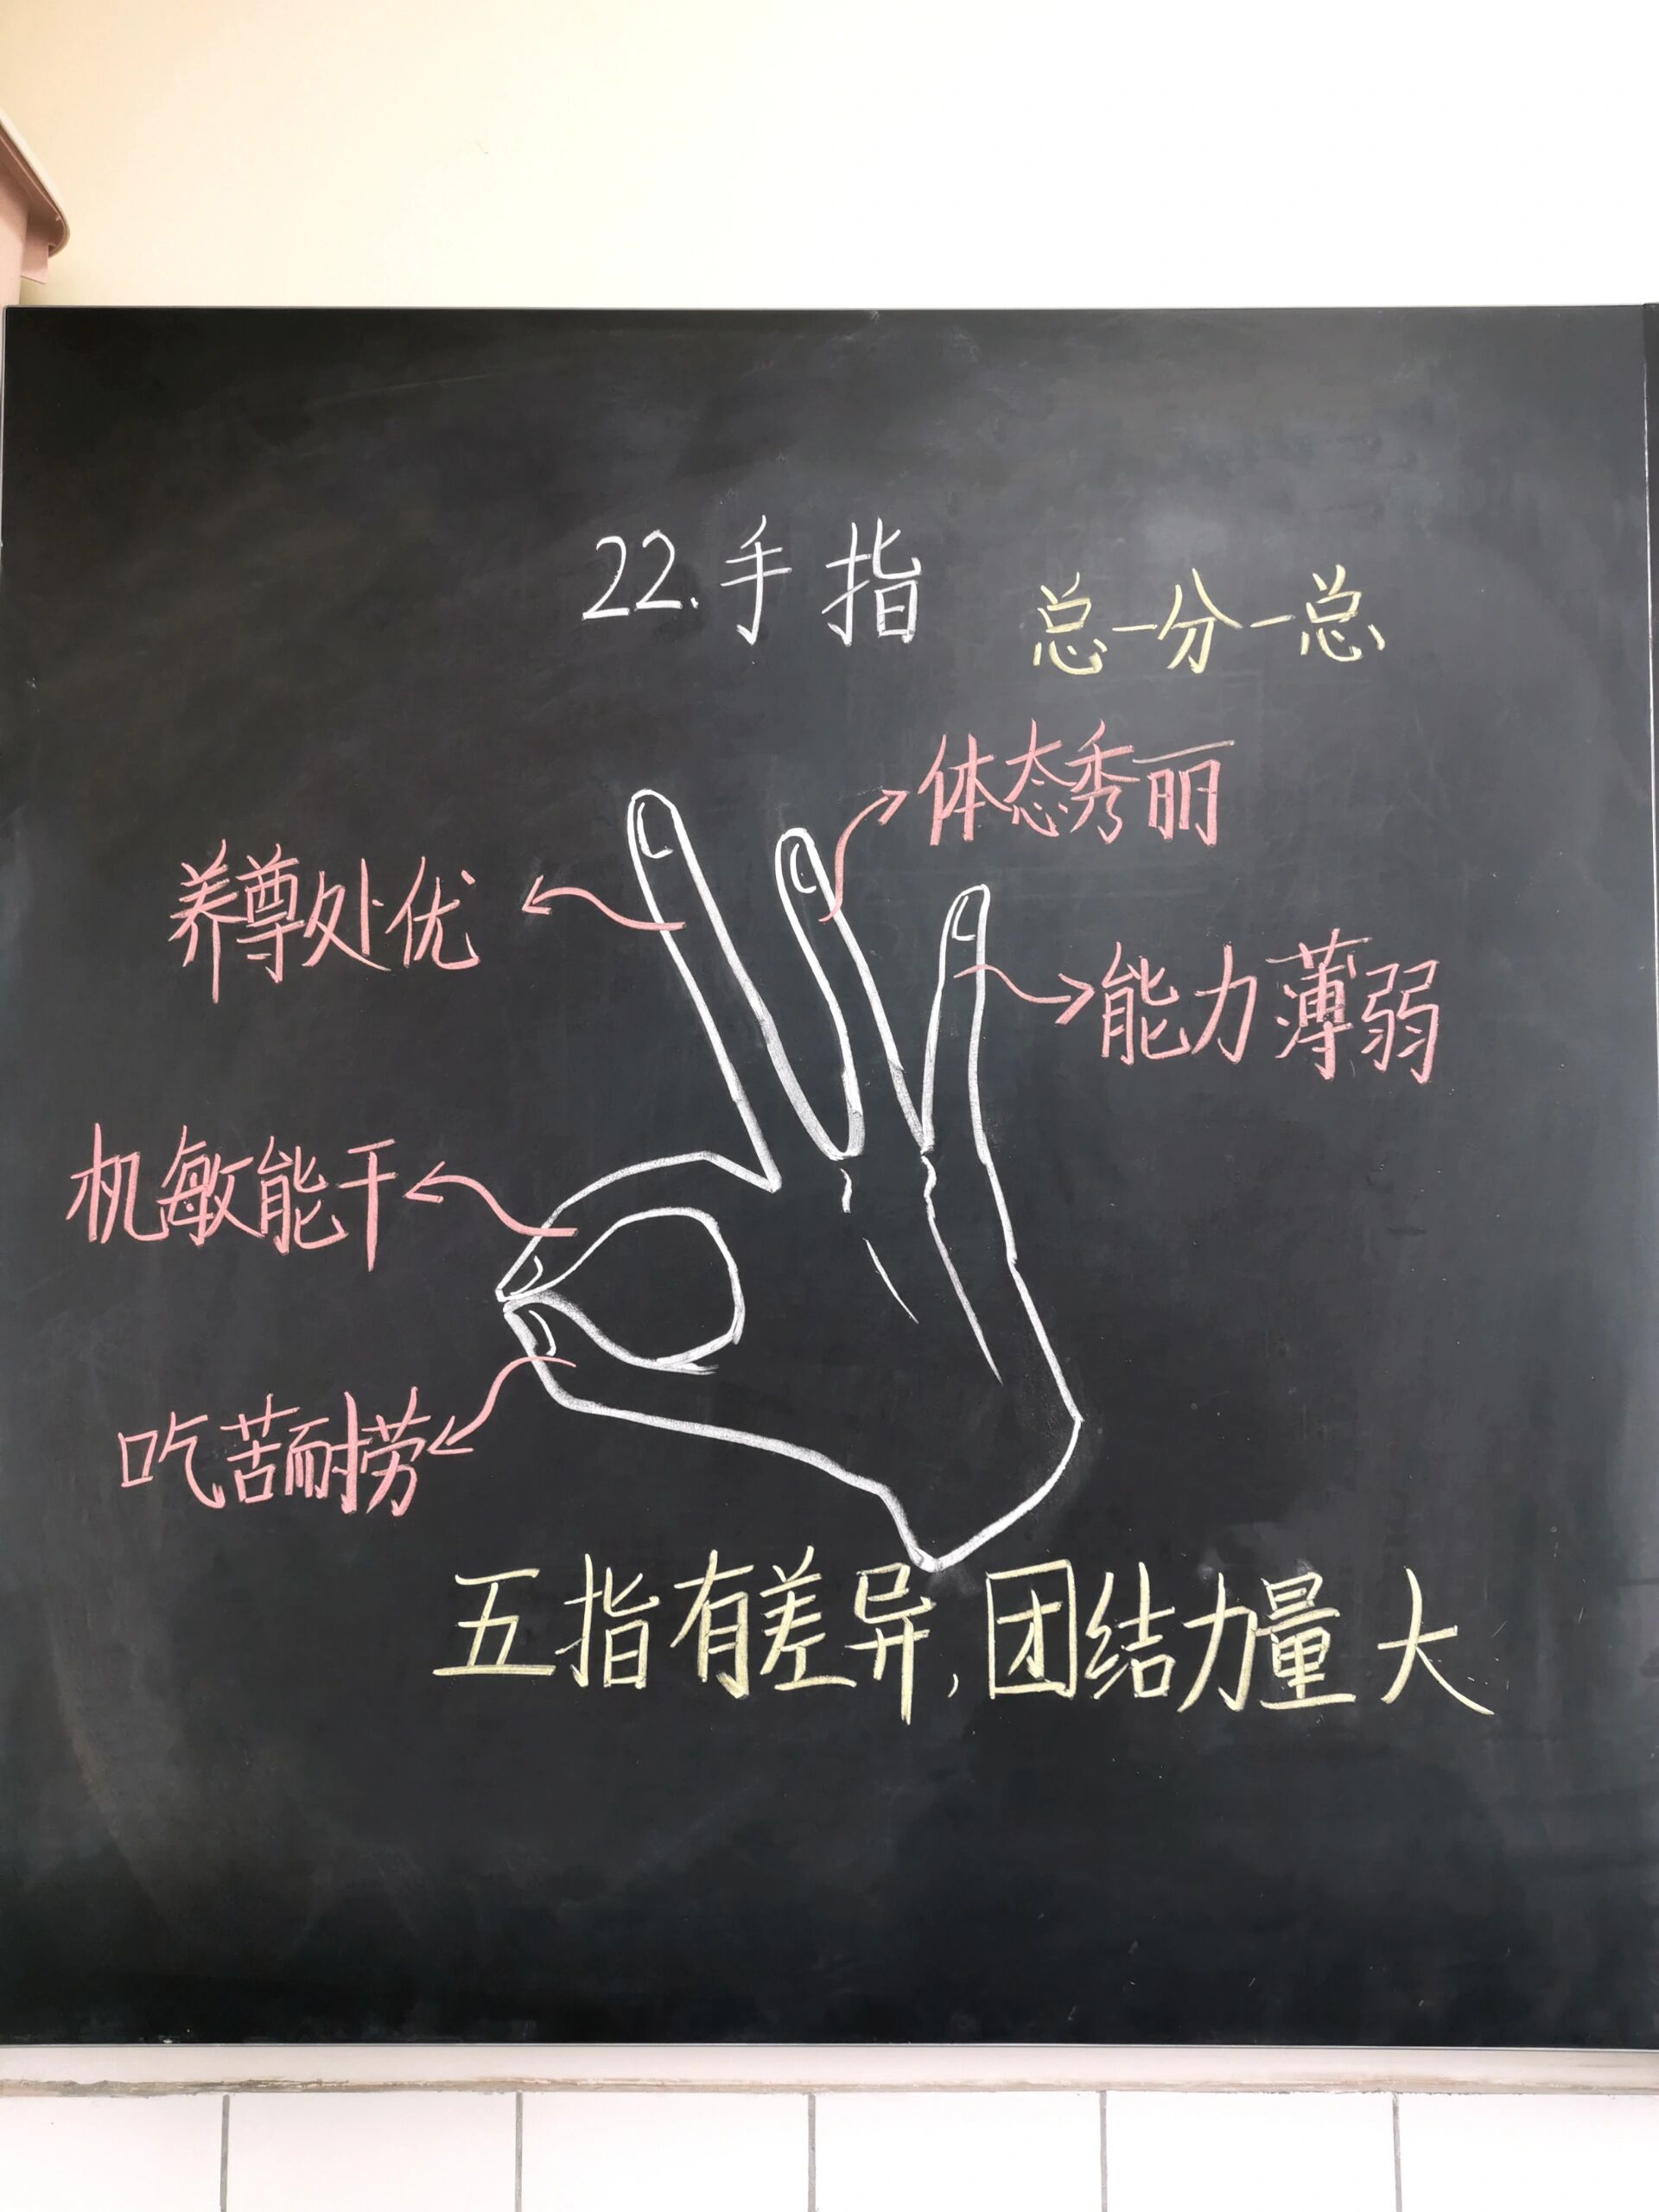 22.手指
总-分-总
体态秀丽
养尊处优
能力薄弱
机敏能干
吃苦耐劳
五指有差异,团结力量大